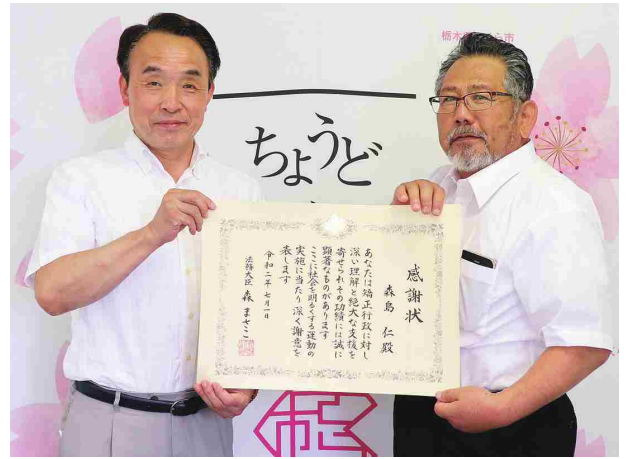 栃木県さくら市
ちょうど
感謝状
森島 仁殿
あなたは矯正行政に対し
深い理解と絶大な支援を
寄せられその功績には誠に
顕著なものがあります
ここに社会を明るくする運動の
実施に当たり深く謝意を
表します
令和二年七月一日
法務大臣 森 まさこ